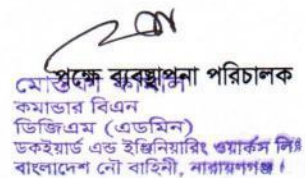 পক্ষে ব্যবস্থাপনা পরিচালক
কমান্ডার বিএন
ডিজিএম (এডমিন)
ডকইয়ার্ড এন্ড ইঞ্জিনিয়ারিং ওয়ার্কস লিঃ
বাংলাদেশ নৌ বাহিনী, নারায়ণগঞ্জ।